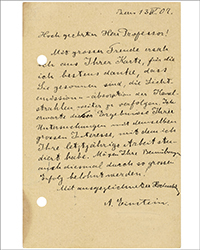 Bern 13 V. 09.
Hochgeehrter Herr Professor!
Mit grosser Freude
aus Ihrer Karte, für die
ich bestens danke, dass
Sie gesonnen sind, die Licht-
emission - absorption der Kanal-
strahlen weiter zu verfolgen. Ich
erwarte die Ergebnisse Ihrer
Untersuchungen mit demselben
grossen Interesse, mit dem ich
Ihre letztjährige Arbeit stu-
diert habe. Mögen Ihre Bemühungen
auch diesmal durch so grossen
Erfolg belohnt werden!
Mit ausgezeichneter Hochachtung
A. Einstein